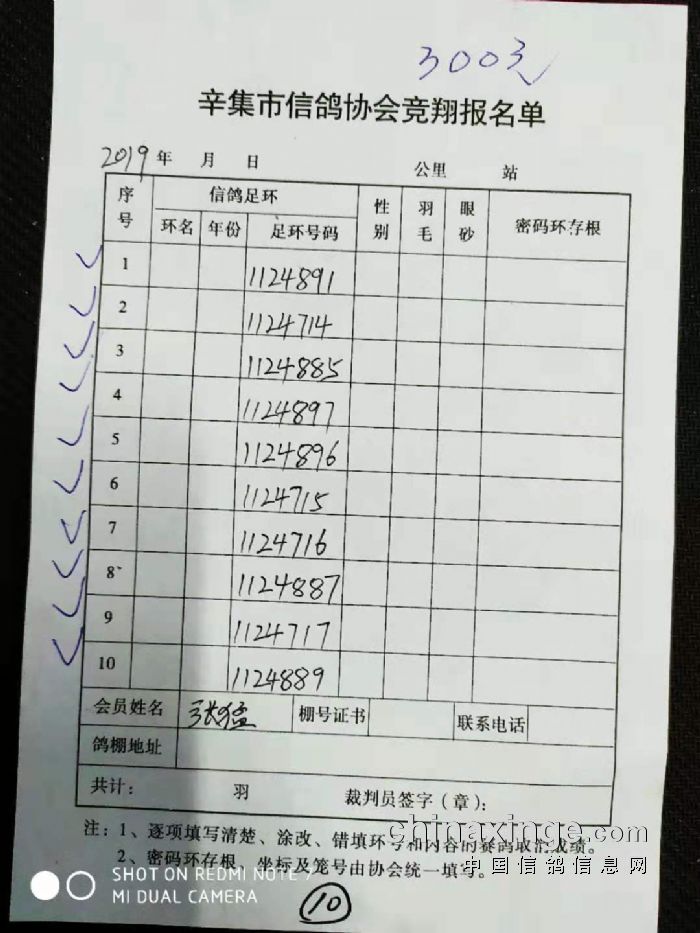 300元
辛集市信鸽协会竞翔报名单
2019年 月 日 公里 站
序号 信鸽足环 性别 羽毛 眼砂 密码环存根
环名 年份 足环号码
1 1124891
2 1124714
3 1124885
4 1124897
5 1124896
6 1124715
7 1124716
8 1124887
9 1124717
10 1124889
会员姓名 张猛 棚号证书 联系电话
鸽棚地址
共计： 羽 裁判员签字（章）：
注：1、逐项填写清楚、涂改、错填环号和内容的赛鸽取消成绩。
2、密码环存根、坐标及笼号由协会统一填写。
chinaxinge.com
中国信鸽信息网
SHOT ON REDMI NOTE 7
MI DUAL CAMERA
10